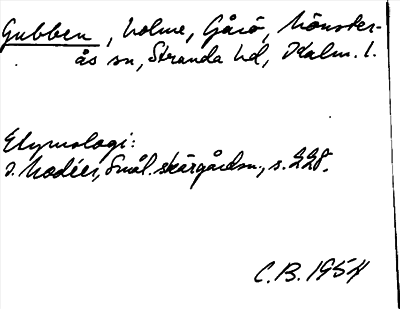 Gubben, holme, Gåsö, Mönster-
ås sn, Stranda hd, Kalm. l.
Etymologi:
I. Modéer, Smål. skärgårdsn., s. 228.
C.B. 1954